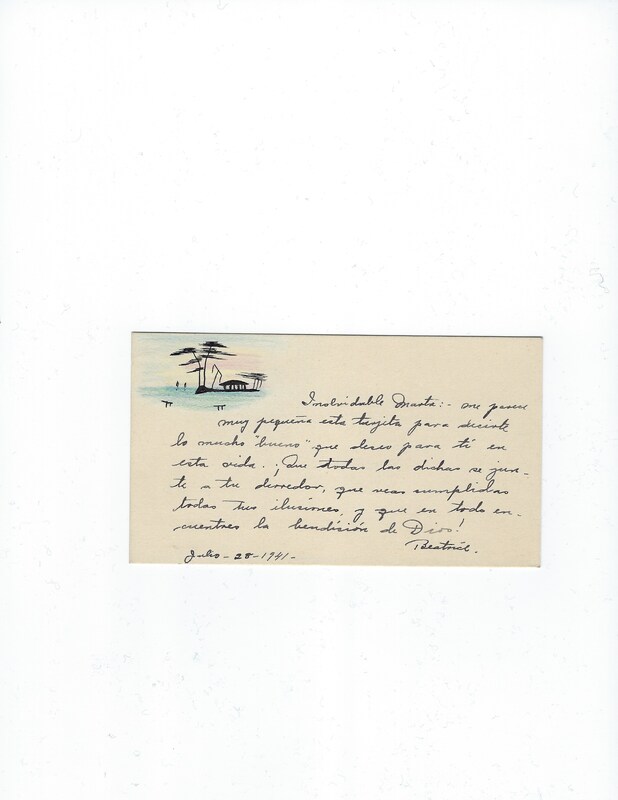 Inolvidable Marta:- me parece
muy pequeña esta tarjita para decirte
lo mucho "bueno" que deseo para tí en
esta vida. ¡Que todas las dichas se jun-
te a tu derredor, que veas cumplidas
todas tus ilusiones, y que en todo en-
cuentres la bendisión de Dios!
Beatriz.
Julio - 28 - 1941 -